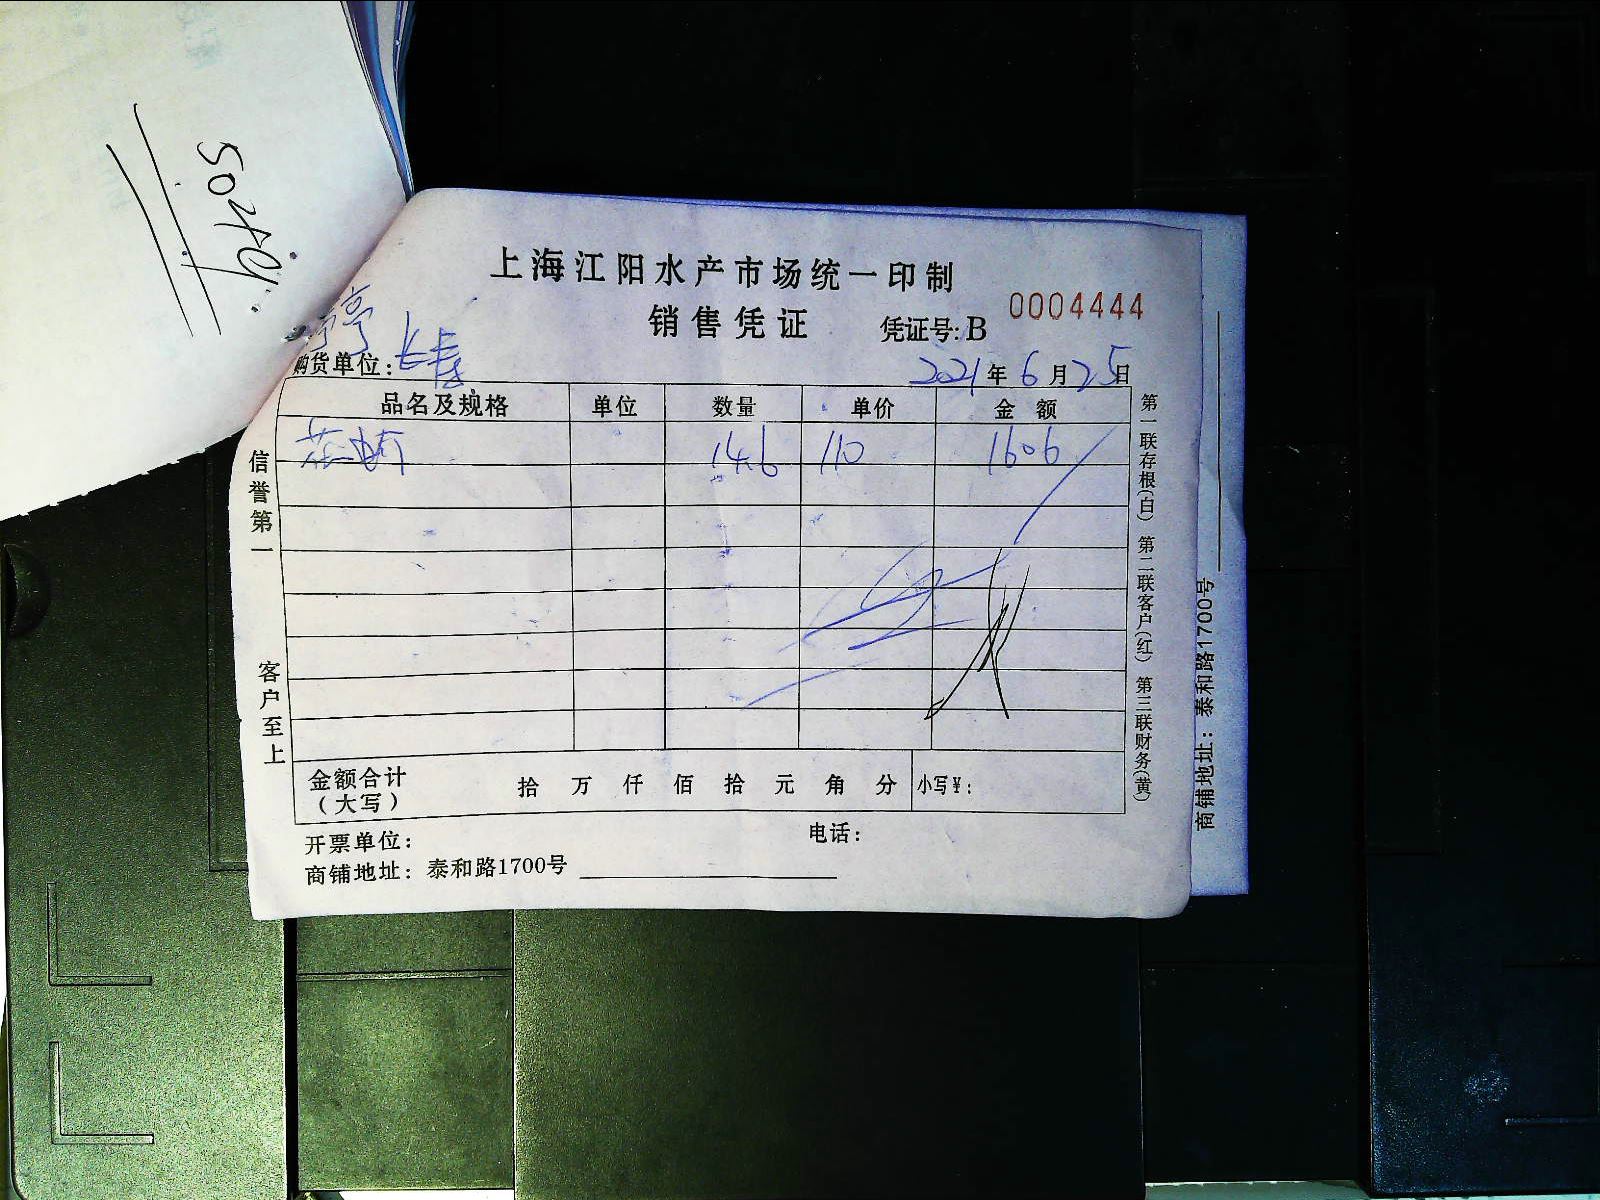 50449
上海江阳水产市场统一印制
销售凭证 凭证号:B 0004444
亭亭
购货单位: 长寿 2021年6月25日
品名及规格 单位 数量 单价 金额
14.6 110 1606
信誉第一 客户至上
第一联存根(白) 第二联客户(红) 第三联财务(黄)
金额合计(大写) 拾 万 仟 佰 拾 元 角 分 小写¥:
开票单位: 电话:
商铺地址: 泰和路1700号
商铺地址: 泰和路1700号